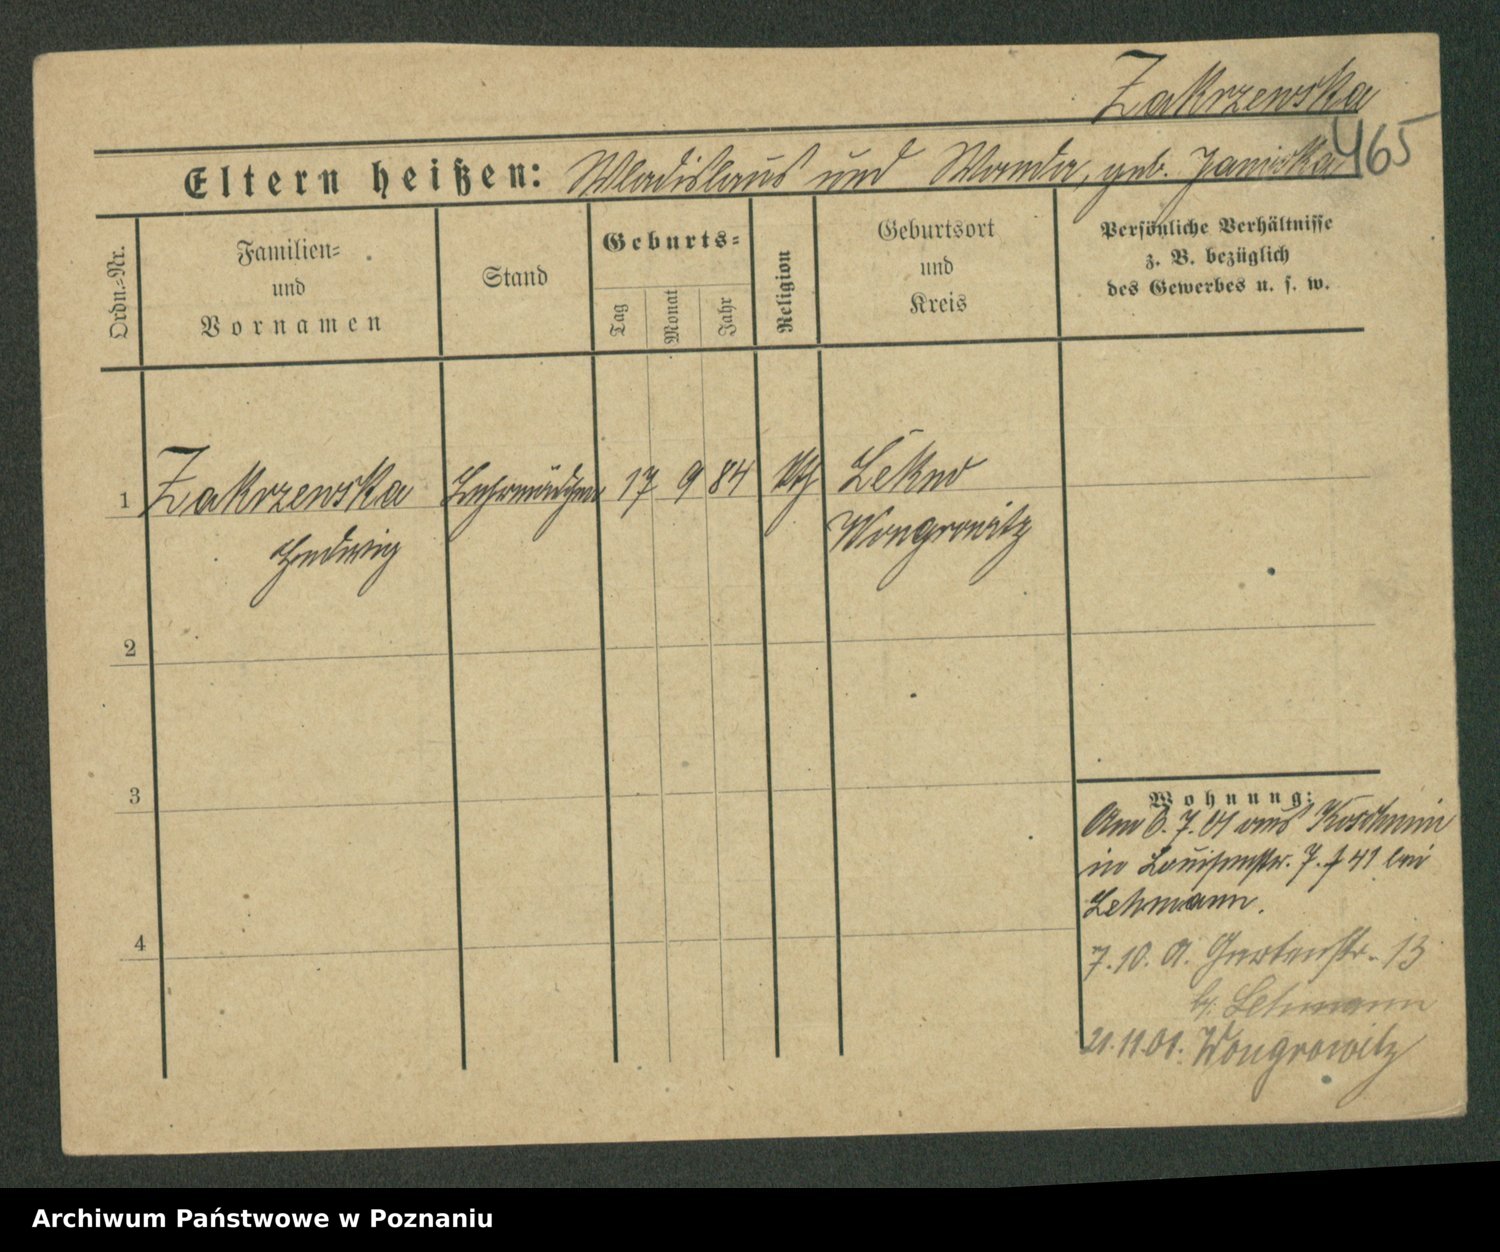 Zakrzewska
465
Eltern heißen: Wladislaus und Wanda, geb.
Ordn.-Nr.
Familien-
und
Vornamen
Stand
Geburts-
Tag
Monat
Jahr
Religion
Geburtsort
und
Kreis
Persönliche Verhältnisse
z. B. bezüglich
des Gewerbes u. s. w.
1 Zakrzewska Lehrmädchen 17 9 84 kth Lekno
Hedwig Wongrowitz
2
3
4
Wohnung:
Am 6. 7. 01 aus Koschmin
in Louisenstr. 7. f 41 bei
Lehmann.
7. 10. 01. Gartenstr. 13
b. Lehmann
21.11.01. Wongrowitz
Archiwum Państwowe w Poznaniu